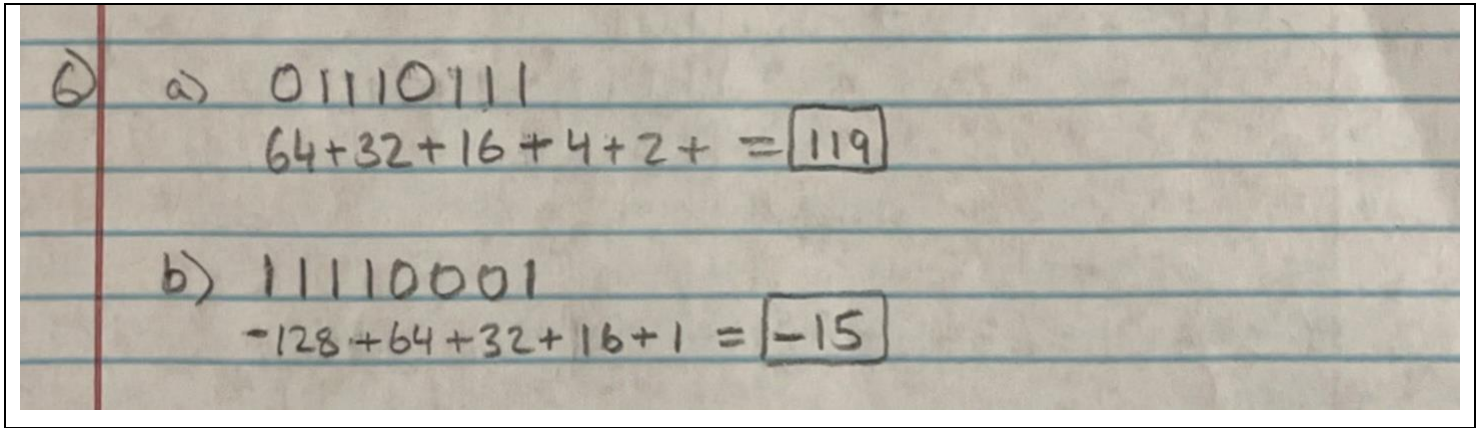 6) a) 01110111
64+32+16+4+2+ = 119
b) 11110001
-128+64+32+16+1 = -15